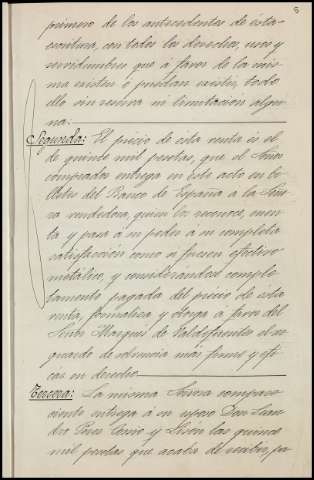 8
primero de los antecedentes de esta
escritura, con todos los derechos, usos y
servidumbres que á favor de la mis-
ma existen ó puedan existir, todo
ello sin reserva ni limitacion algu-
na:
Segunda: El precio de esta venta es el
de quince mil pesetas, que el Señor
comprador entrega en este acto en bi-
lletes del Banco de España á la Seño-
ra vendedora, quien los reconoce, cuen-
ta y pasa á su poder á su completa
satisfacción como si fuesen efectivo
metálico, y considerandose comple-
tamente pagada del precio de esta
venta, formaliza y otorga á favor del
Señor Marqués de Valdefuentes el res-
guardo de solvencia más firme y efi-
cáz en derecho.
Tercera: La misma Señora compare-
ciente entrega á su esposo Don
y las quince
mil pesetas que acaba de recibir, pa-